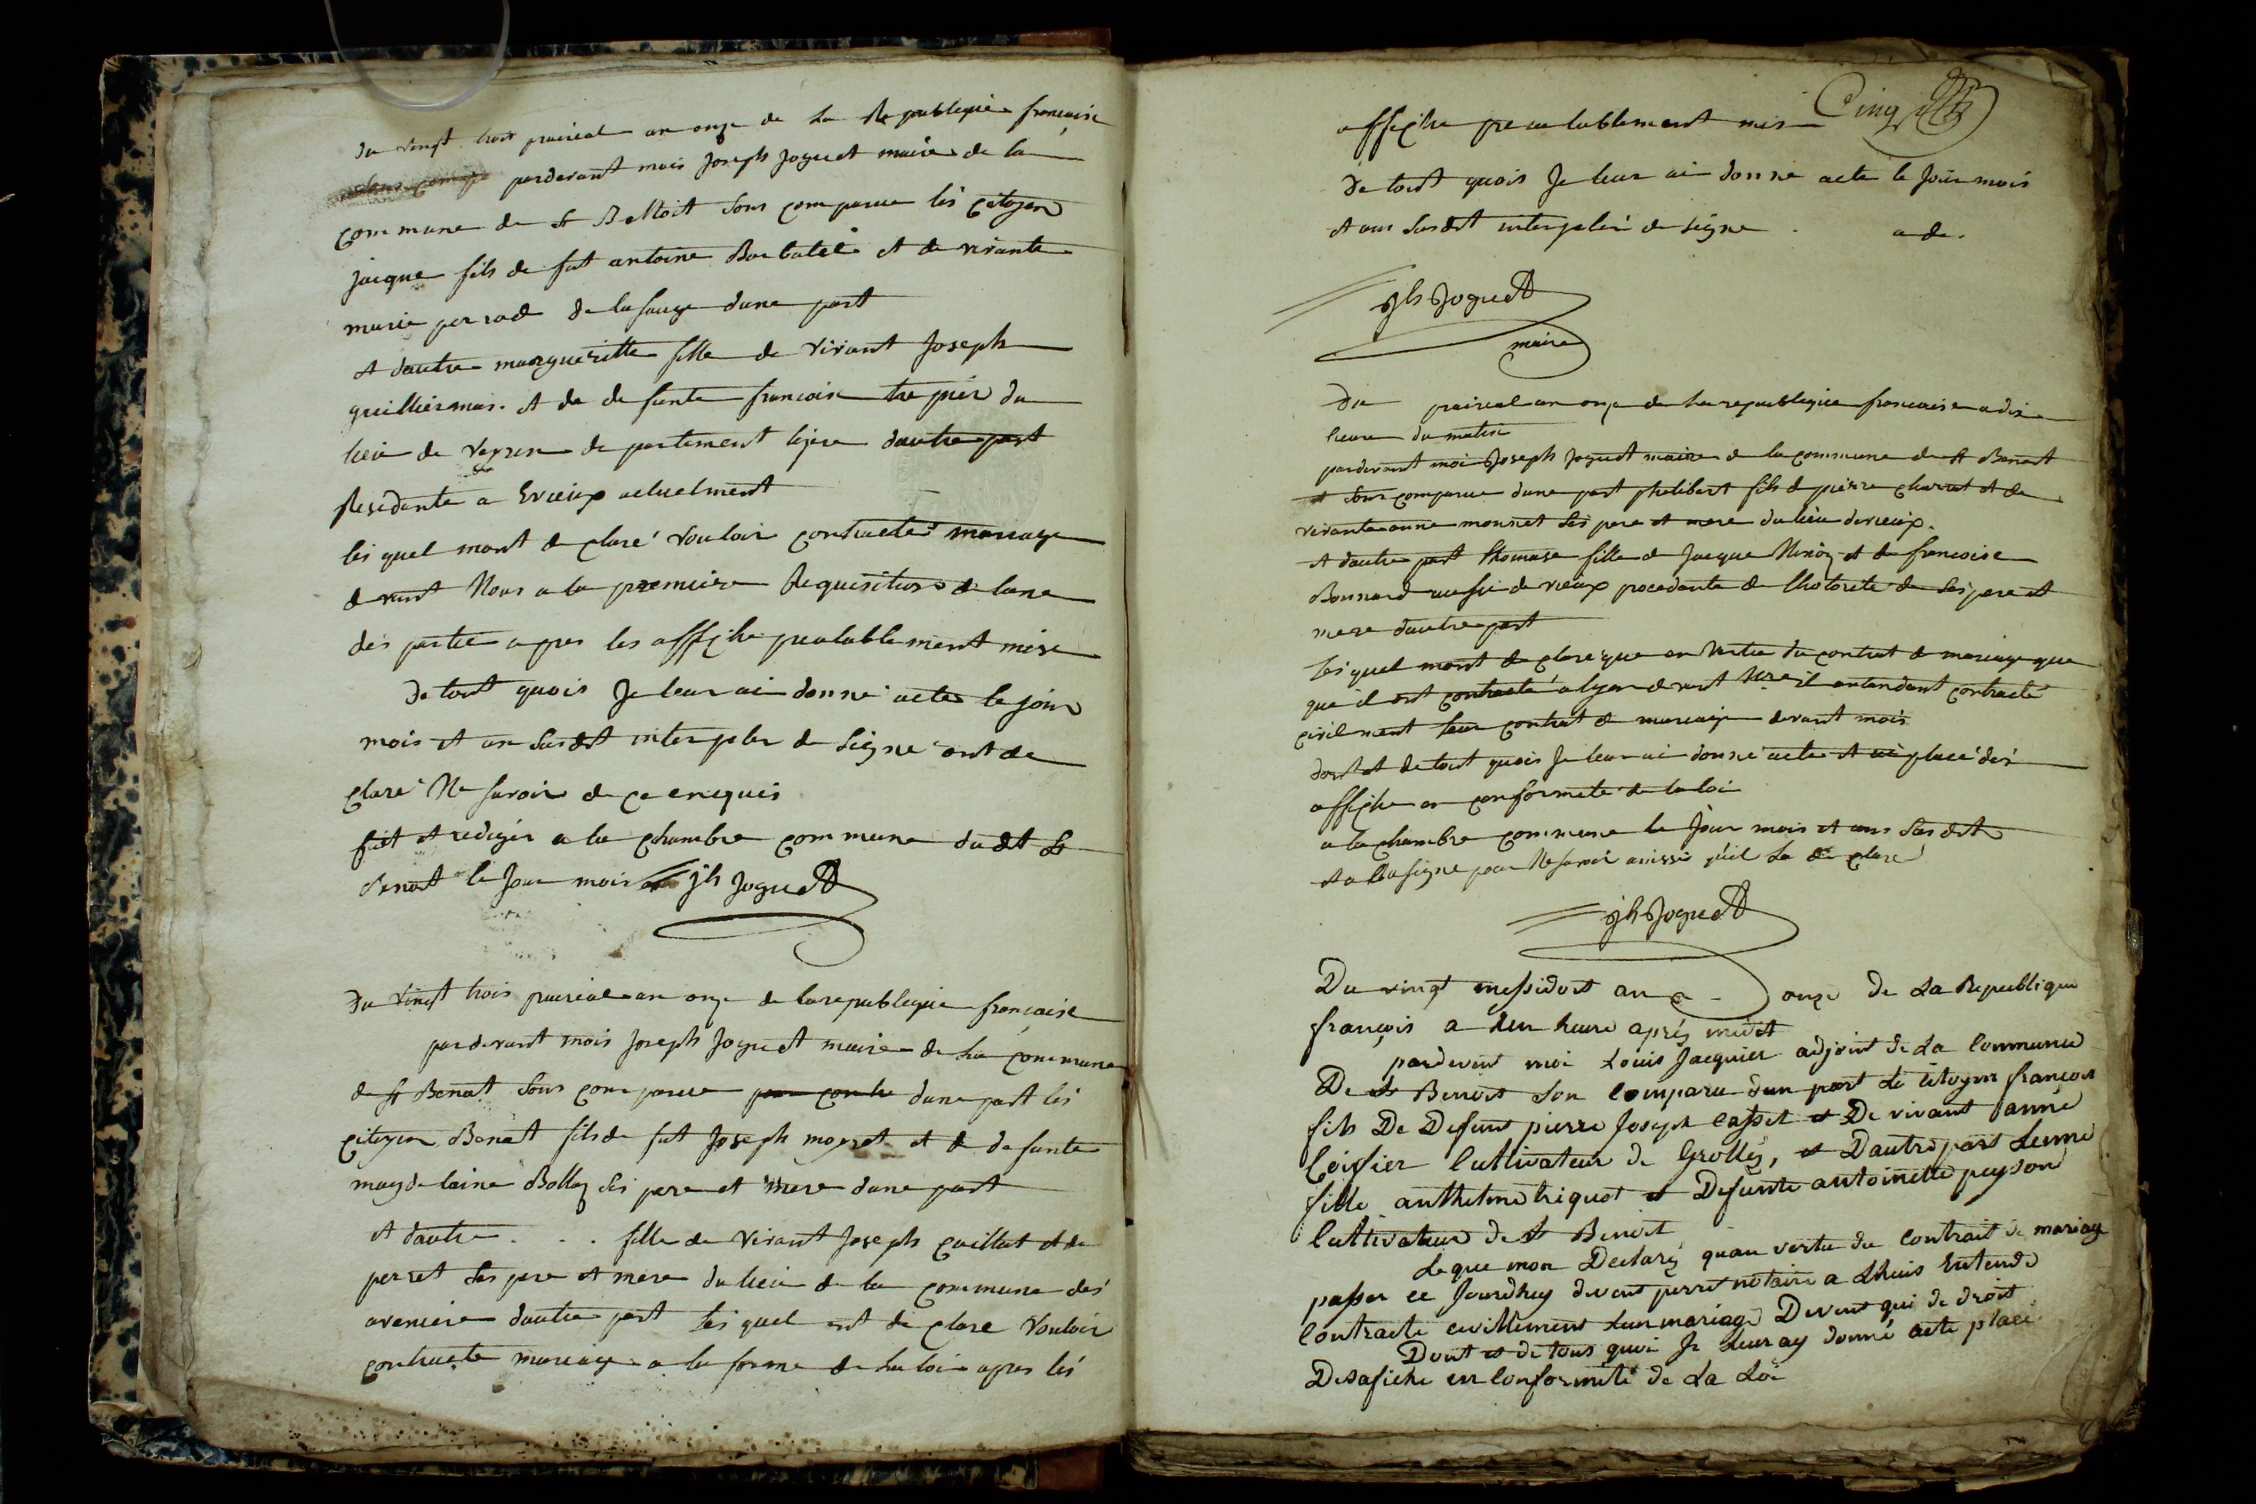 du vingt trois prairial an onze de La Republiquee francaise
pardevant mois Joseph Joguet maire de la
commune de St Bettoit sons comparue lés citoyen
jacque fils de fut antoine Barbatel et de vivante
marie perrad de lasauge dune part
et dautre margueritte fille de vivant Joseph
guilliermas. et de defunte francoise du
lieu de veyren departement lizere dautre part
Residente a Evieux actuelment
lesquel mont declaré vouloir contracter mariage
devant Nous a la premiere Requisition de lune
des partie apres les affiche prealablement mise
de tout quois Je leur ai donné acte le jour
mois et an susdt interpler de signe ont de
claré Ne savoir de ce enequis
fait et rediger a la chambre commune dudt St
Benoit le Jour mois jh Joguet
du vingt trois prairial an onze de larepubliquie francaise
pardevant mois Joseph Joguet maire de La commune
de St Benoit sons comparue dune part lés
citoyen Benoit fils de fut Joseph moyret et de defunte
magdelaine Bollaz ses pere et mere dune part
et dautre . . . fille de vivant Joseph caillat et de
perret ses pere et mere du lieu de la commune des
aveniere dautre part lesquel ont declare vouloir
contracte mariage a la forme de La loi apres lés
Cinq
affiche prealablement mis
de tout quois Je leur ai donné acte le Jour mois
et an susdt interpler de signe . a de.
jh Joguet
maire
du prairial an onze de La republiquie francaise a dix
heure du matin
pardevant moi Joseph Joguet maire de la commune de St Benoit
et sons comparue dune part phelibert fils de pierre charvet et de
vivante anne monnet ses pere et mere du lieu devieux.
et dautre part thomase fille de Jacque et de francoise
Bonnard aussi devieux procedante de lhotorité de ses pere et
mere dautre part
lesquel mont declare que en vertu du contrat de mariage que
que il ont contracté a lyon devant Nre il entendent contracté
civilment leur contrat de mariage devant mois
dont et de tout quois Je leur ai donné acte et ai placé dés
affiche en conformeté de la loi
a la chambre commune le Jour mois et an susdt
et a signe pour Ne savoir ainssi quil La declaré
jh Joguet
Du vingt messidort an onze De La Republique
françois a heure aprés midit
pardevent moi Louis Jacquier adjoint De La Commune
De St Benoit son Comparu dun part Le Citoyen françois
fils De Defunt pierre Joseph Casset et De vivant anne
Coissier Cultivateur De Grolley, et Dautre part
fille anthelme triquet et Defunte antoinette peyson
Cultivateur de St Benoit
Le que mon Declaré quan vertu du Contrait de mariage
passer ce Jourdhuy devent perret notaire a Lhuis Entende
Contracte civillement Leur mariage Devent qui de droit
Dont et de tous quoi Je Leur ay donné acte placé
Desafiche en Conformité de La Loi